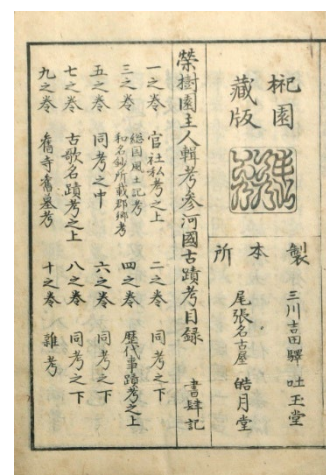 榊園
藏版
製本所
三川吉田驛 吐玉堂
尾張名古屋 皓月堂
榮樹園主人輯考参河國古蹟考目録 書肆記
一之巻 官社私考之上
二之巻 同考之下
三之巻 総国風土記考
和名鈔所載郡郷考
四之巻 歴代事蹟考之上
五之巻 同考之中
六之巻 同考之下
七之巻 古歌名蹟考之上
八之巻 同考之下
九之巻 舊寺舊墓考
十之巻 雜考